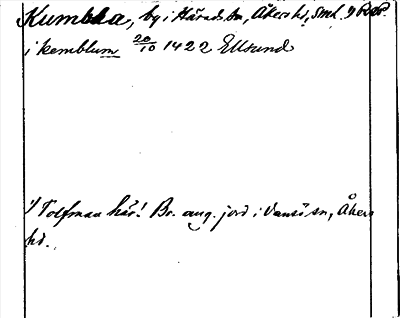 Kumbla, by i Härads sn, Åkers hd, Sml. 1) RAP.
i kemblum 20/10 1422 Ellsund
1) Tolfman här! Br. ang. jord i Vansö sn, Åkers
hd.